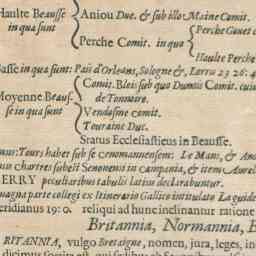 Haulte Beausse
in qua sunt
Aniou Duc. & sub illo Maine Comit.
Perche Comit. in quo
Perche Gouet
Haulte Perche
Basse in qua sunt: Païs d'Orleans, Sologne &, Lorris 23 26: 4
Moyenne Beaus-
se in qua sunt
Comit. Blois sub quo Dunois Comit. cui
de Tonnaire.
Vendosme Comit.
Touraine Duc.
Status Ecclesiasticus in Beausse.
Tours habet sub se Cenomannensem: Le Mans, & An
Chartres subest Senonensi in Campania, & item Aureli
ERRY peculiaribus tabulis latius declarabuntur.
magna parte collegi ex Itinerario Gallico intitulato La guide
eridianus 19: 0. reliqui ad hunc inclinantur ratione
Britannia, Normannia, B
RITANNIA, vulgo Bretaigne, nomen, jura, leges, in